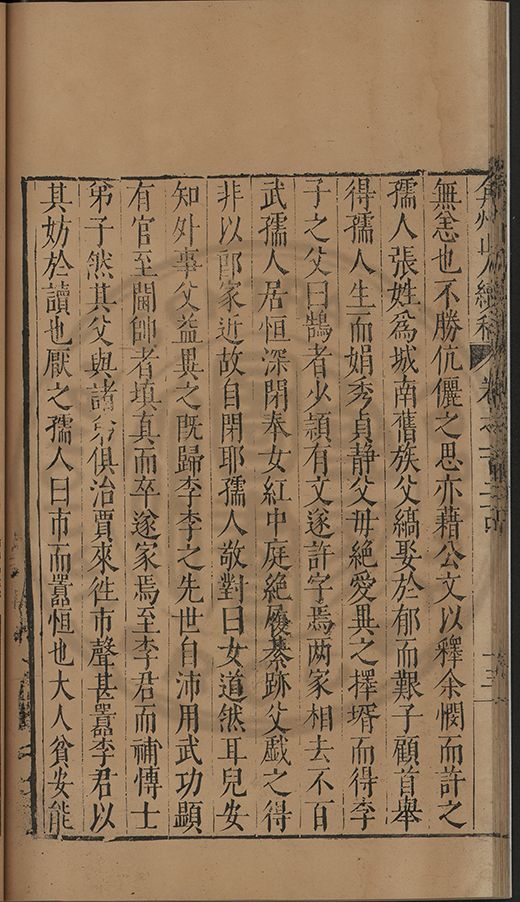 弇州山人續稿 卷之一百二十四 十三
無恙也不勝伉儷之思亦藉公文以釋余憫而許之
孺人張姓為城南舊族父縞娶於郁而艱子顧首舉
得孺人生而娟秀貞静父母絶愛異之擇壻而得李
子之父曰鵠者少頴有文遂許字焉两家相去不百
武孺人居恒深閉奉女紅中庭絶履綦跡父戱之得
非以郎家近故自閉耶孺人敬對曰女道然耳兒安
知外事父益異之既歸李李之先世自沛用武功顯
有官至閫帥者填真而卒遂家焉至李君而補愽士
第子然其父與諸弟俱治賈來徃市聲甚囂李君以
其妨於讀也厭之孺人曰市而囂恒也大人貧安能